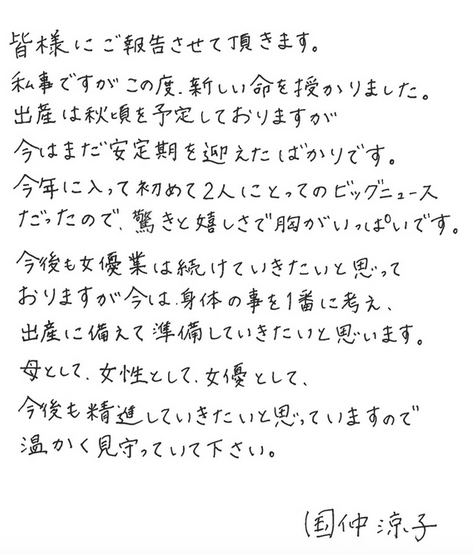 皆様にご報告させて頂きます。
私事ですがこの度、新しい命を授かりました。
出産は秋頃を予定しておりますが
今はまだ安定期を迎えたばかりです。
今年に入って初めて2人にとってのビッグニュース
だったので、驚きと嬉しさで胸がいっぱいです。
今後も女優業は続けていきたいと思って
おりますが今は、身体の事を1番に考え、
出産に備えて準備していきたいと思います。
母として、女性として、女優として、
今後も精進していきたいと思っていますので
温かく見守っていて下さい。
国仲涼子